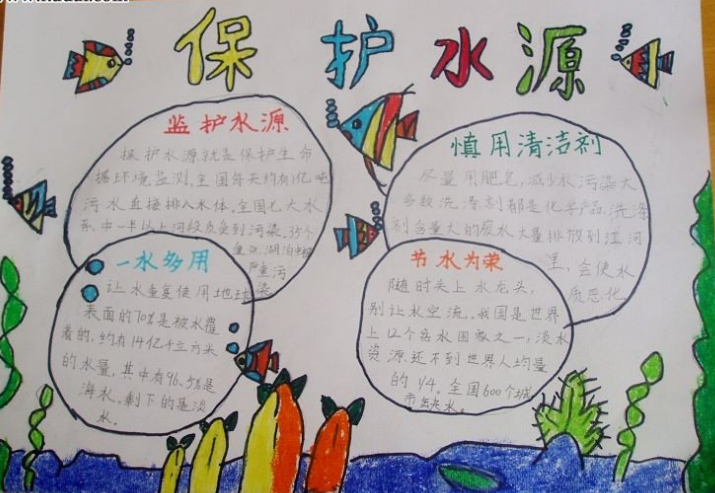 保护水源
监护水源
保护水源就是保护生命
据环境监测,全国每天约有1亿吨
污水直接排入水体。全国七大水
系中一半以上河段水质受到污染。35个
重点湖泊中
严重污
染
慎用清洁剂
尽量用肥皂,减少水污染大
多数洗涤剂都是化学产品,洗涤
剂含量大的废水大量排放到江河
里,会使水
质恶化。
一水多用
让水重复使用地球
表面的70%是被水覆
着的,约有14亿千立方米
的水量,其中有96.5%是
海水。剩下的是淡
水。
节水为荣
随时关上水龙头,
别让水空流。我国是世界
上12个贫水国家之一,淡水
资源还不到世界人均量
的1/4,全国600个城
市
水。